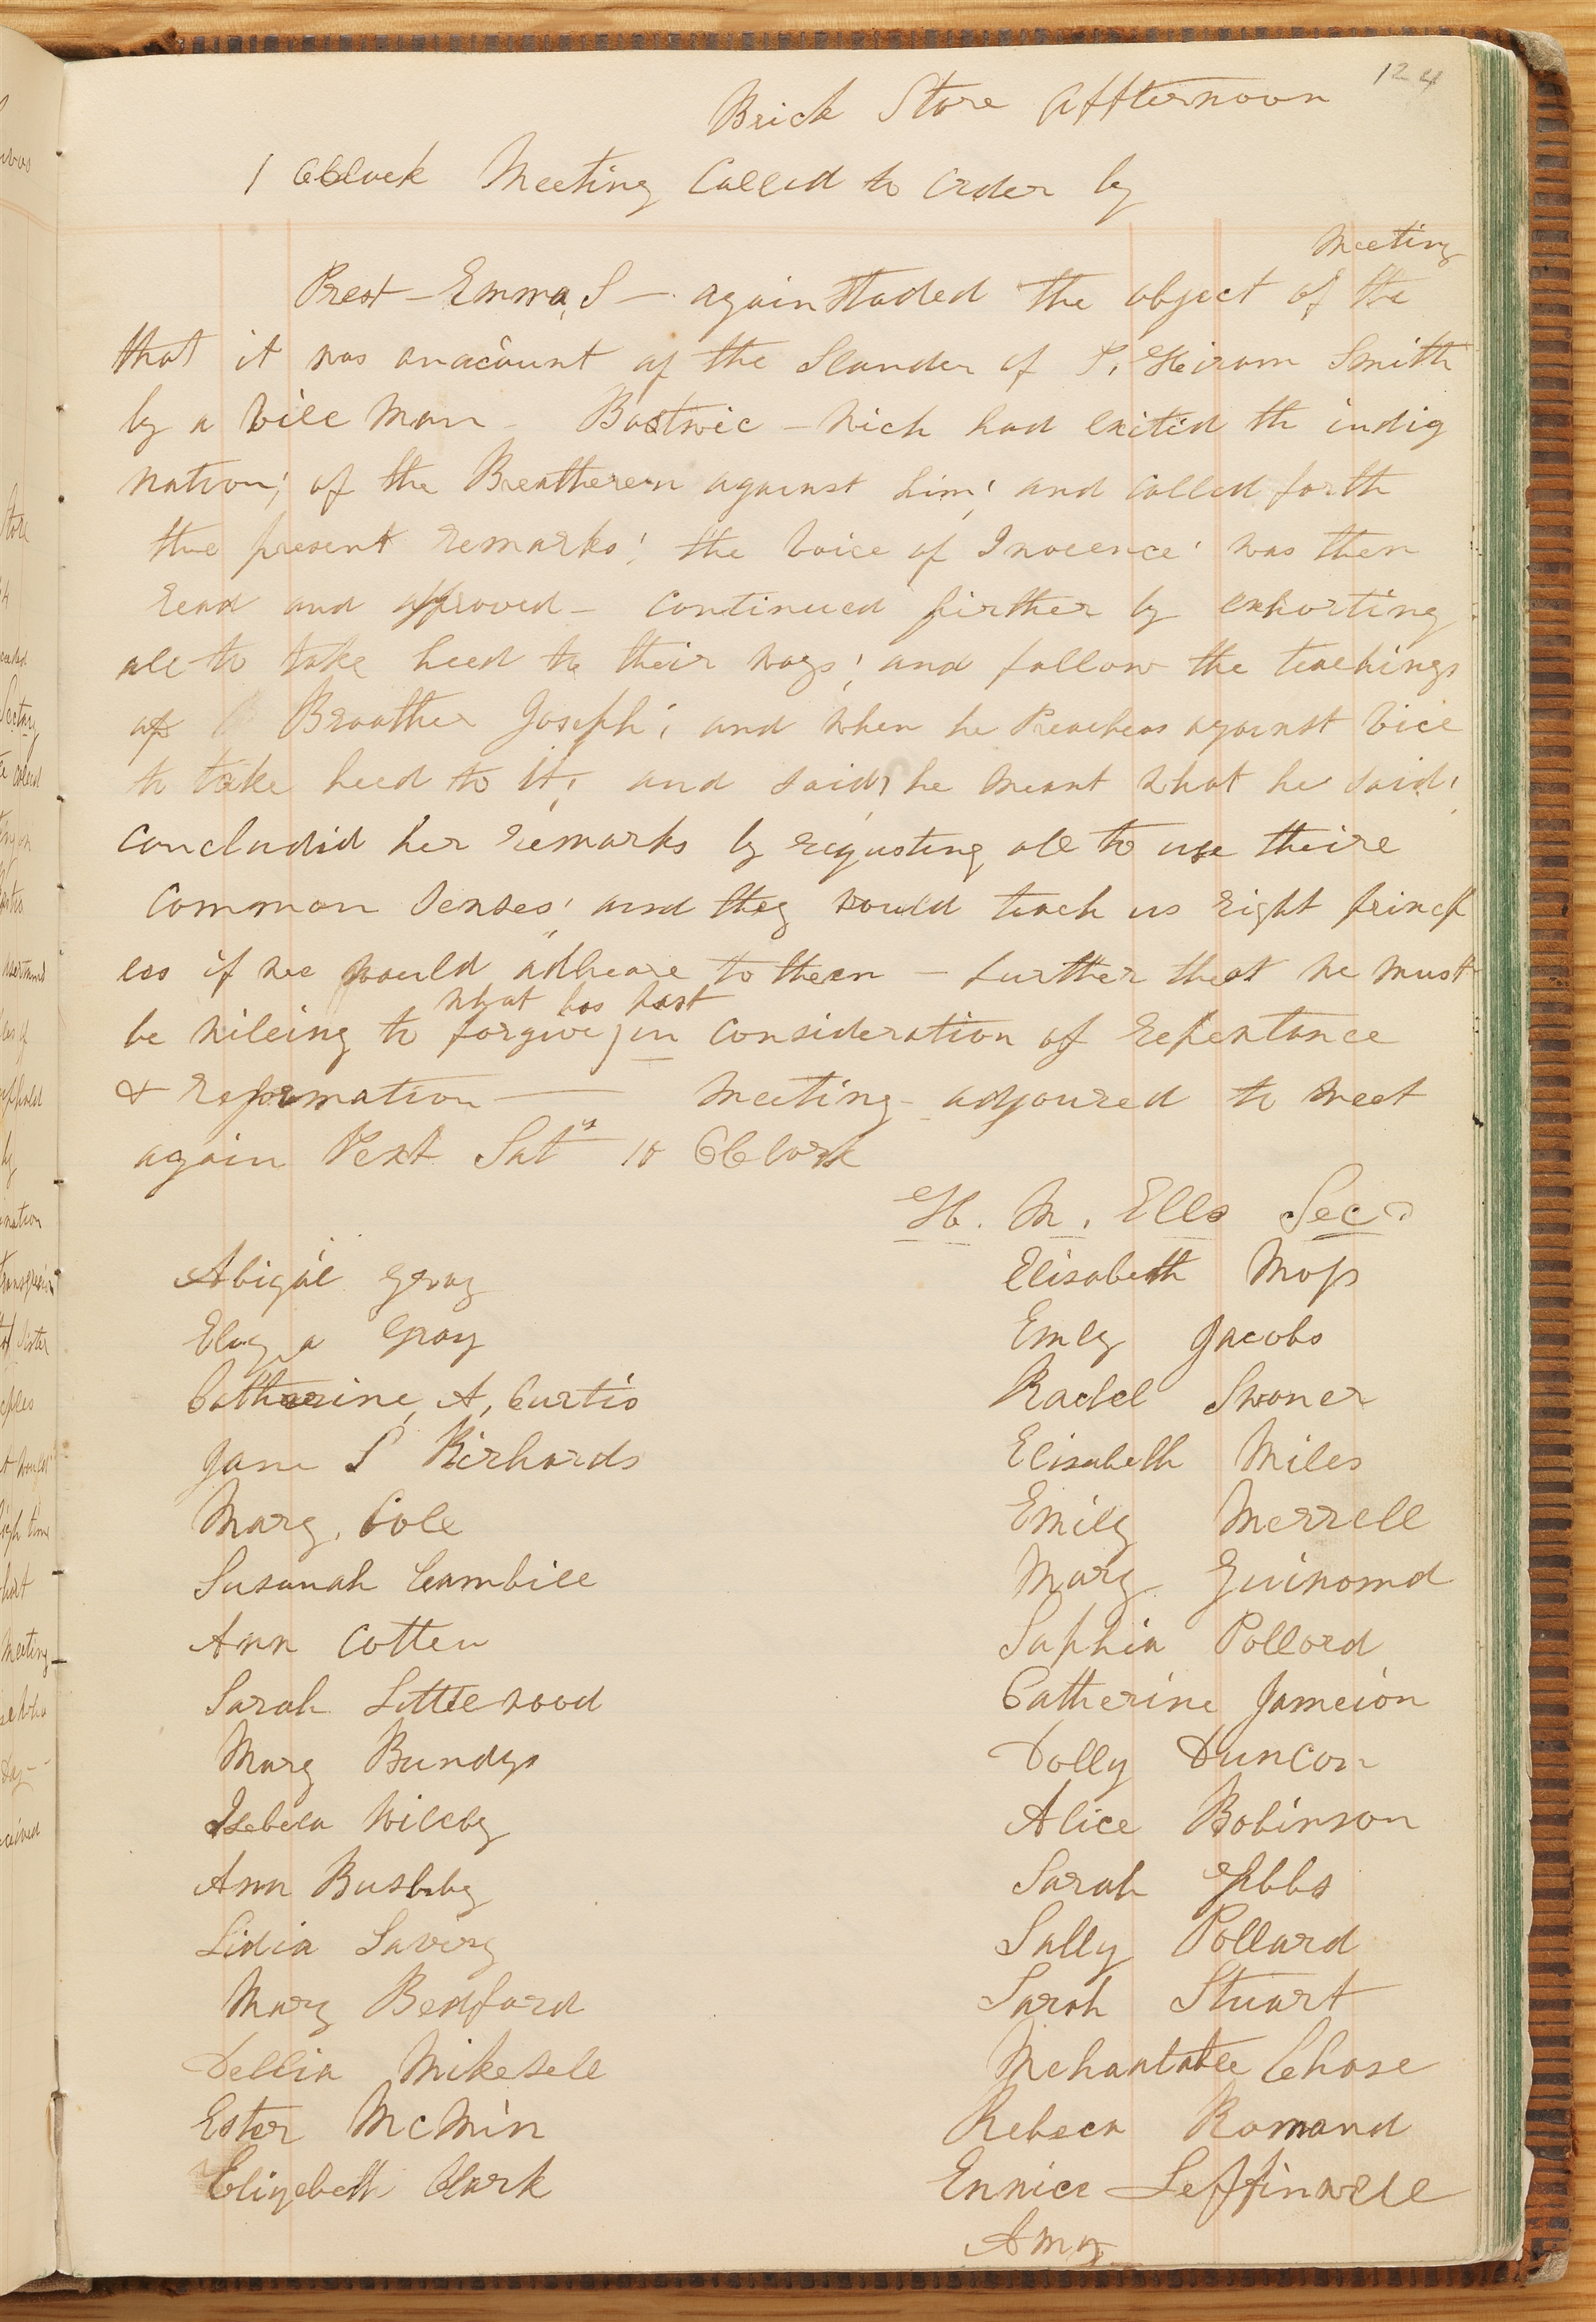 124
Brick Store Affternoon
1 Oclock Meeting Called to order by
Prest - Emma, S - again Staded the object of the meeting
that it was on account of the Slander of P. Hiram Smith
by a vile man - Bostwic - wich had exited th indig
nation; of the Breatheren against him; and called forth
the present remarks; the Voice of Inocence' was then
read and approved - continued firther by exhorting
all to take heed to their ways; and follow the teachings
of Broather Joseph; and when he Preachess against vice
to take heed to it; and said, he meant what he said;
concludid her remarks by requsting all to use theire
common senses; and they would teach us right princp
les if we would adheare to them - further that we must
be wileing to forgive what has past, in consideration of repentance
& reformation — meeting - adjoured to meet
again Next Sat 10 Oclock
H. M. Ells Sec
Abigail Gray
Elisabeth Moss
Gray
Emly Jacobs
Catherine, A, Curtis
Rachel Swaner
Jane S Richards
Elisabeth Miles
Mary, Cole
Emily Merrell
Susanah Cambill
Mary
Ann Cotten
Saphia Pollard
Sarah Littlewood
Catherine Jameion
Mary Bundys
Dolly Duncan
Isebela Wilcby
Alice Robinson
Ann Busbby
Sarah Hibbs
Lidia Savery
Sally Pollard
Mary Bedford
Sarah Stuart
Dellia Mikesell
Chase
Ester McMin
Rebeca Romand
Elizebeth Clark
Eunice Leffinwell
Amy